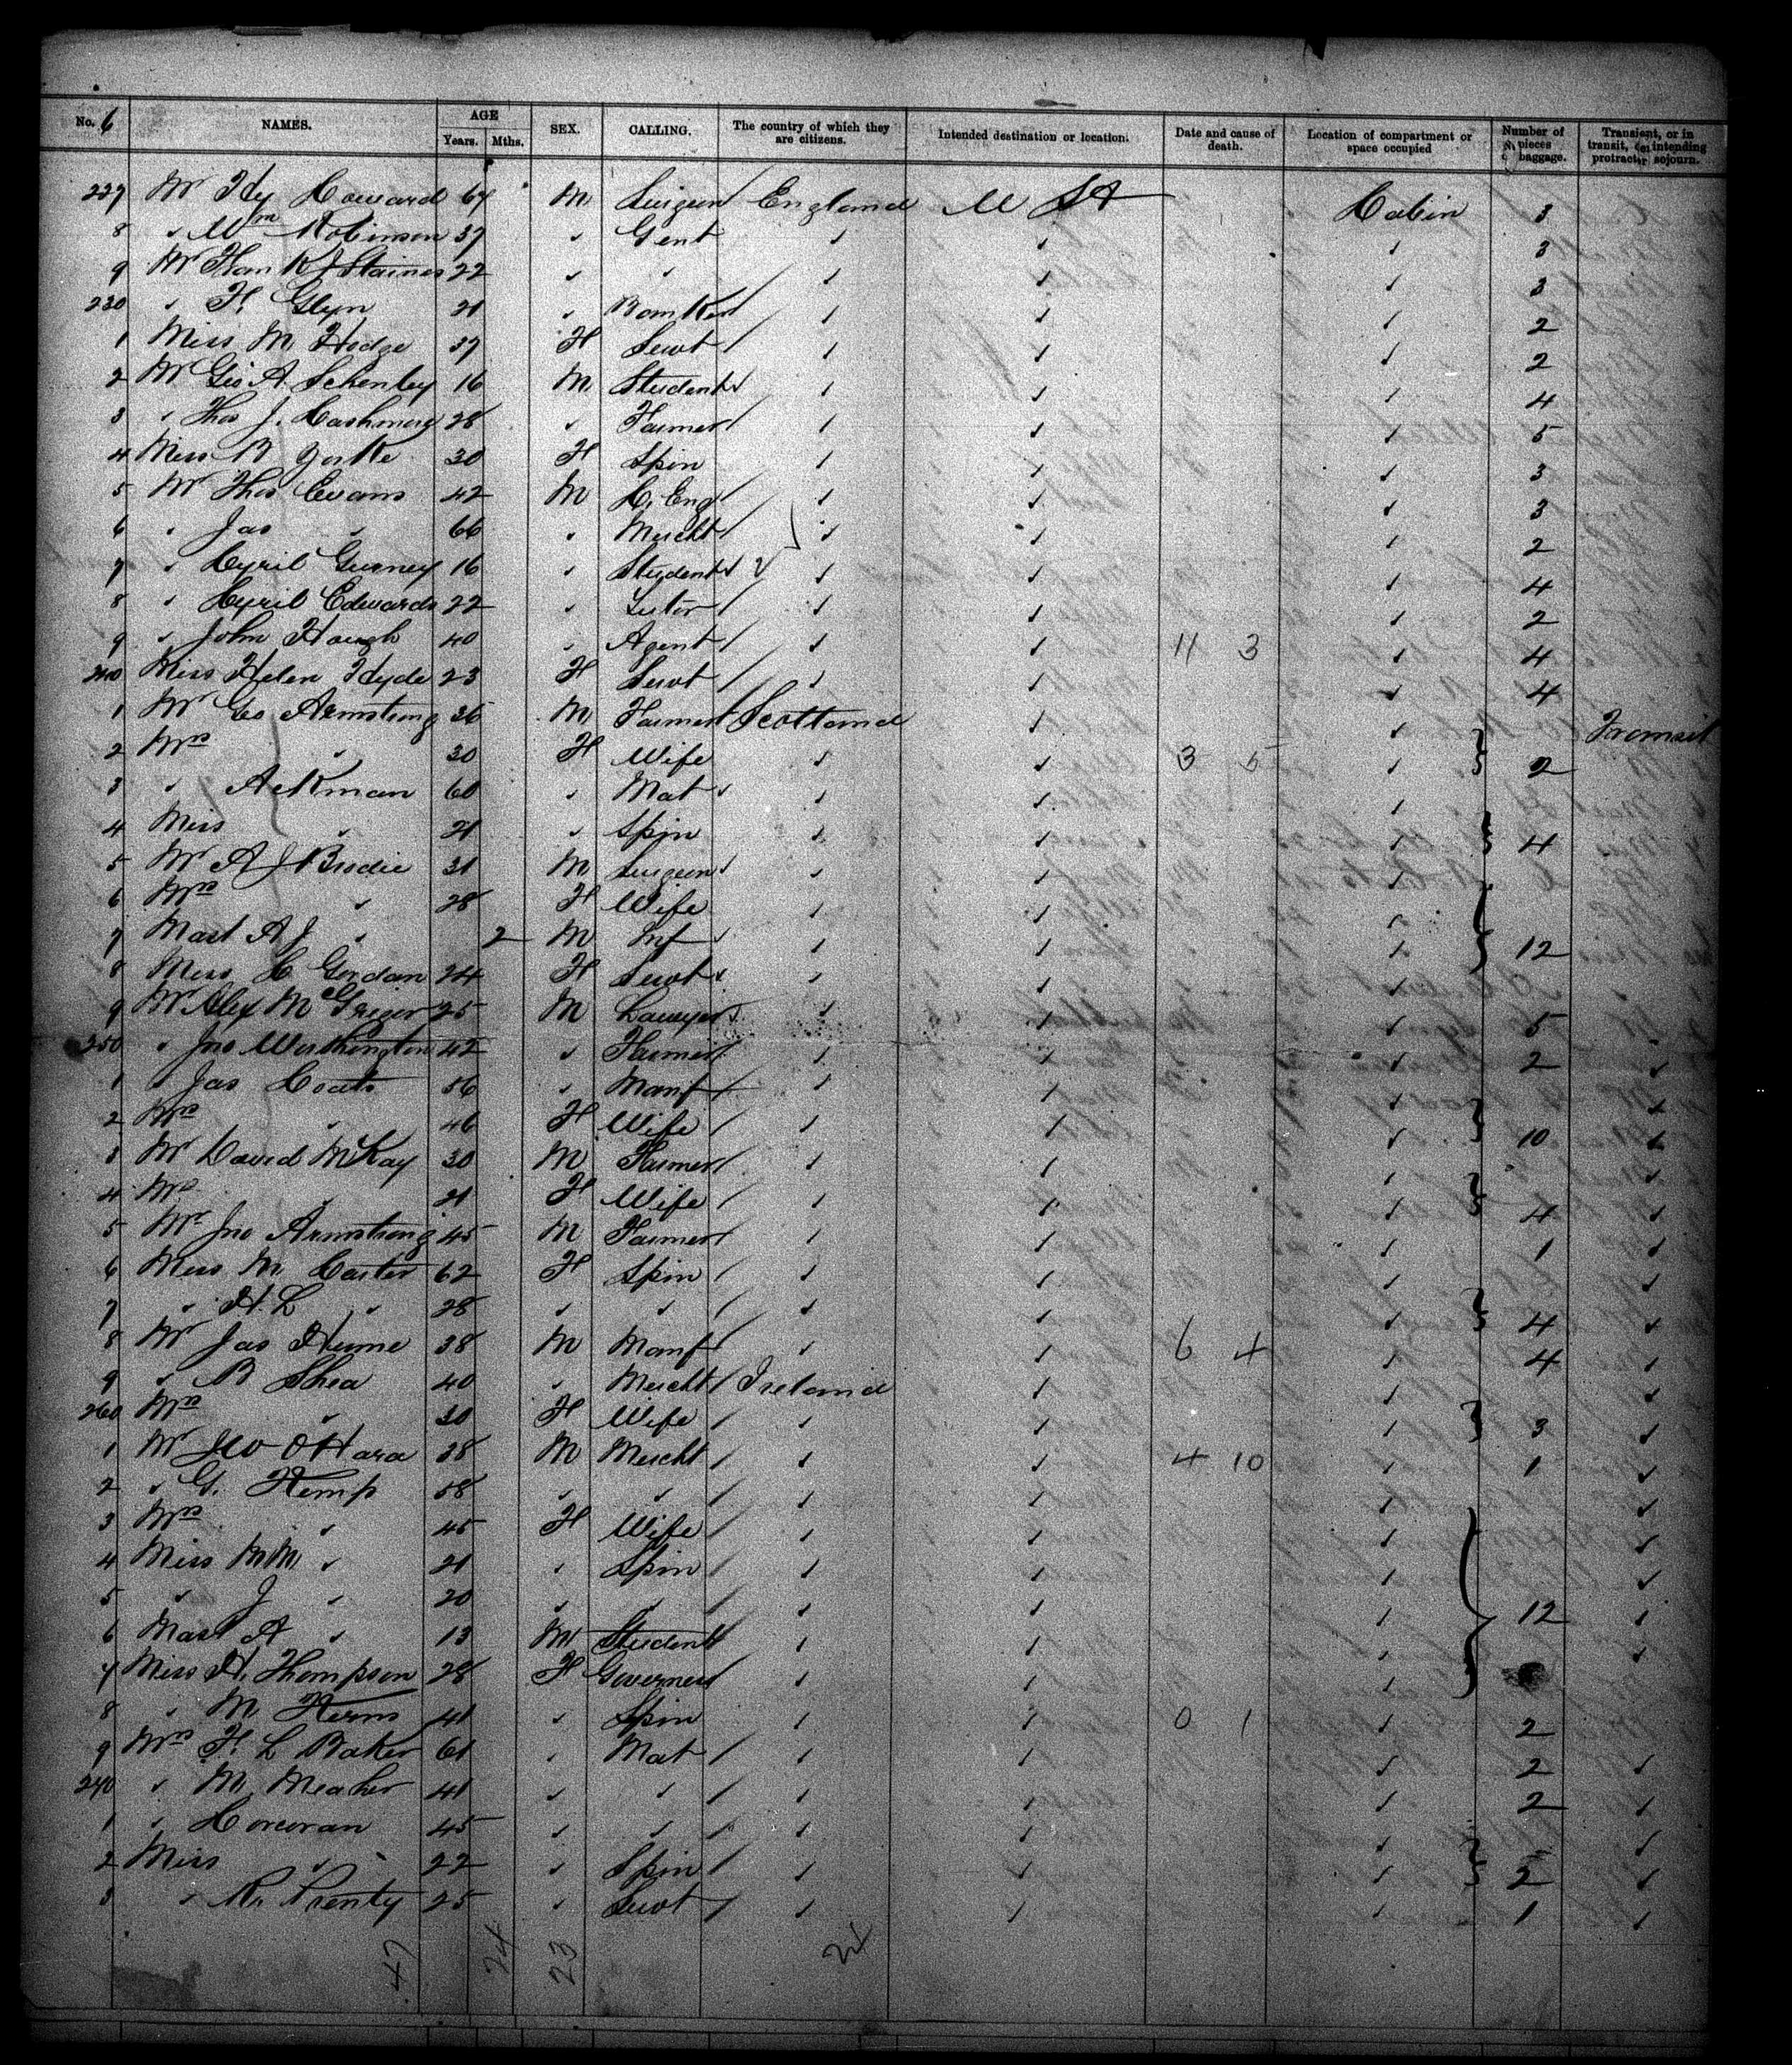 No. 6 NAMES. AGE Years. Mths. SEX. CALLING. The country of which they are citizens. Intended destination or location. Date and cause of death. Location of compartment or space occupied Number of pieces baggage. Transient, or in transit, or intending protracted sojourn.
227 Mr Hy Howard 67 M Surgeon England U St Cabin 3
8 " Wm Robinson 37 " Gent " " " 3
9 Mr Staines 22 " " " " " 3
230 " F. Glyn 21 " Banker " " " 2
1 Miss M. Hodge 37 F Servt " " " 2
2 Mr Geo A. Schenley 16 M Student " " " 4
3 " Thos J. Cashmore 28 " Farmer " " " 5
4 Miss B Yorke 30 F Spin " " " 3
5 Mr Thos Evans 42 M C. Eng " " " 3
6 " Jas " 66 " Mercht " " " 2
7 " Cyril Gurney 16 " Student " " " 4
8 " Cyril Edwards 22 " Tutor " " " 2
9 " John Hough 40 " Agent " " 11 3 " 4
240 Miss Helen Hyde 23 F Servt " " " 4
1 Mr Geo Armstrong 36 M Farmer Scotland " " Transit
2 Mrs " 30 F Wife " " 3 5 " 2
3 " Aikman 60 " Mat " " "
4 Miss " 21 " Spin " " " 4
5 Mr A J Brodie 31 M Surgeon " " "
6 Mrs " 28 F Wife " " "
7 Mast A J " 2 M Inf " " " 12
8 Miss C Gordon 24 F Servt " " "
9 Mr Alex McGregor 25 M Lawyer " " " 5
250 " Jno Worthington 42 " Farmer " " " 2 "
1 " Jas Coats 56 " Manf " " " "
2 Mrs " 46 F Wife " " " 10 "
3 Mr David McKay 30 M Farmer " " " "
4 Mrs " 21 F Wife " " " 4 "
5 Mr Jno Armstrong 45 M Farmer " " " 1 "
6 Miss M. Carter 62 F Spin " " " "
7 " H. L " 28 " " " " " 4 "
8 Mr Jas Hume 38 M Manf " " 6 4 " 4 "
9 " B Shea 40 " Mercht Ireland " " "
260 Mrs " 30 F Wife " " " 3 "
1 Mr O'Hara 38 M Mercht " " 4 10 " 1 "
2 " G. Kemp 58 " " " " " "
3 Mrs " 45 F Wife " " " "
4 Miss M.M. " 21 " Spin " " " "
5 " J " 20 " " " " " 12 "
6 Mast A " 13 M Student " " " "
7 Miss H. Thompson 28 F Governess " " "
8 " M 41 " Spin " " 0 1 " 2
9 Mrs F. L Baker 61 " Mat " " " 2 "
240 " M. Meaher 41 " " " " " 2 "
1 " Corcoran 45 " " " " " "
2 Miss " 22 " Spin " " " 2 "
3 " 25 " Servt " " " 1 "
47 24 23 24